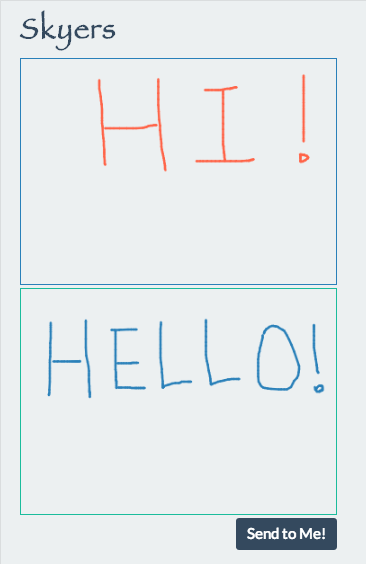 Skyers
HI!
HELLO!
Send to Me!